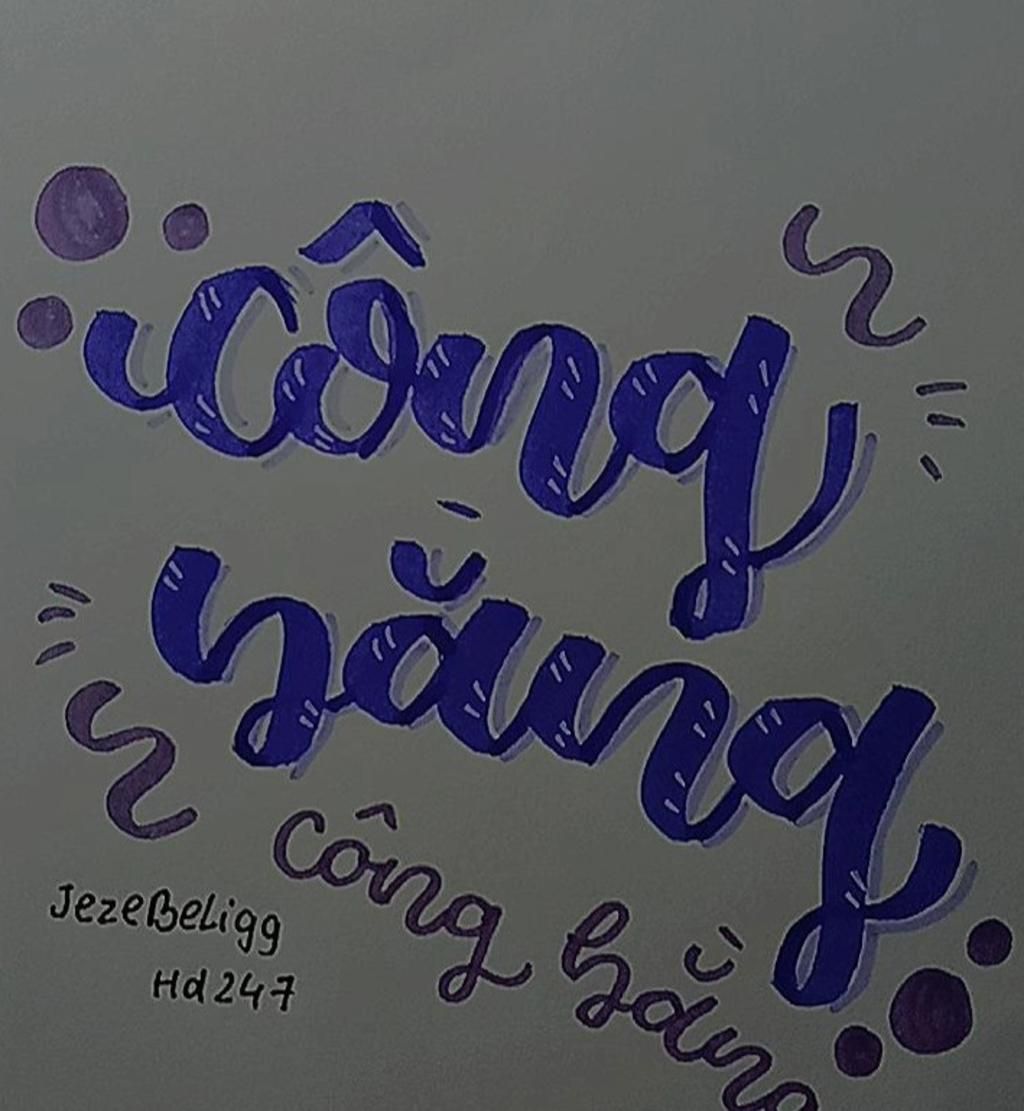 Công
bằng
Công bằng
JezeBeLigg
Hd247